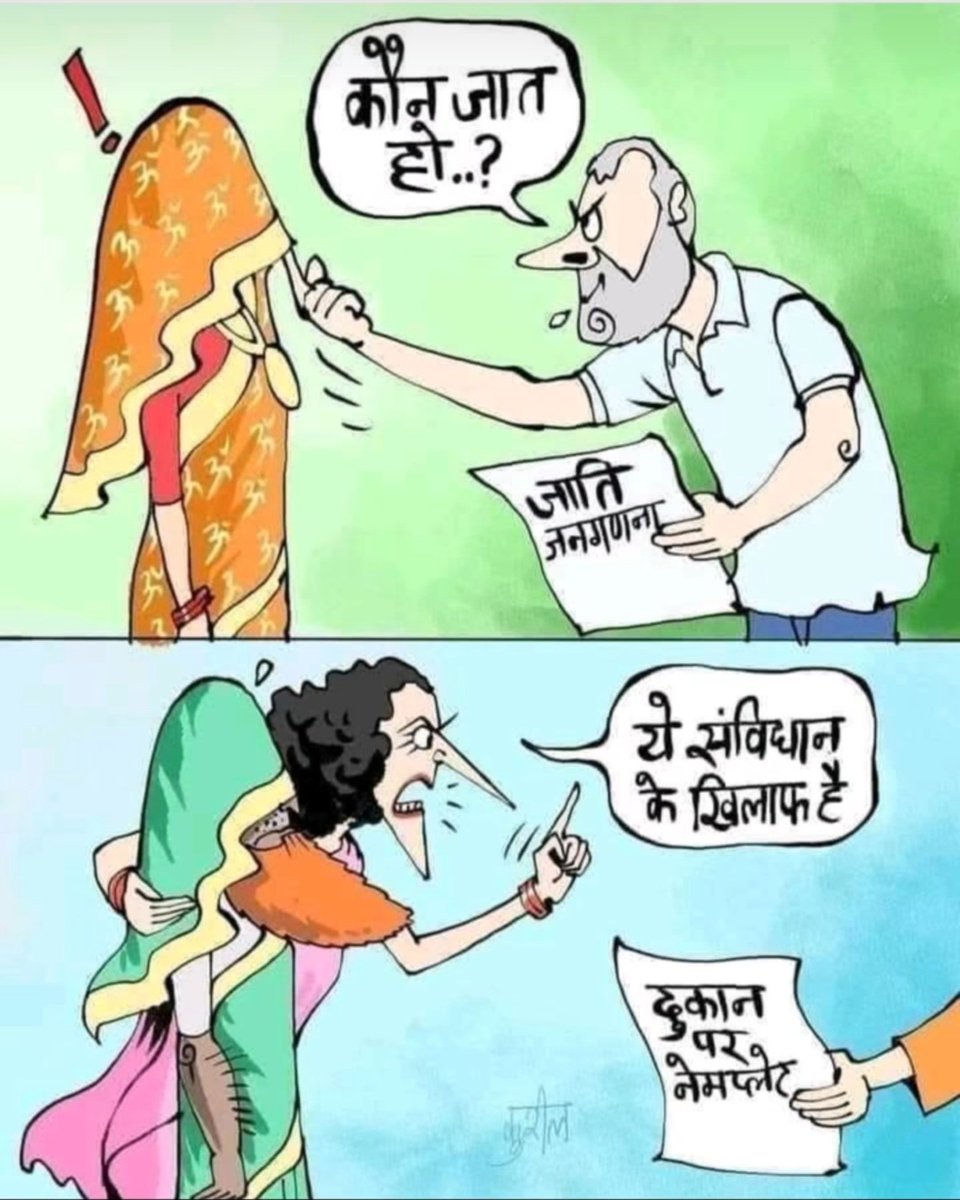 कौन जात
हो..?
जाति
जनगणना
ये संविधान
के खिलाफ है
दुकान
पर
नेमप्लेट